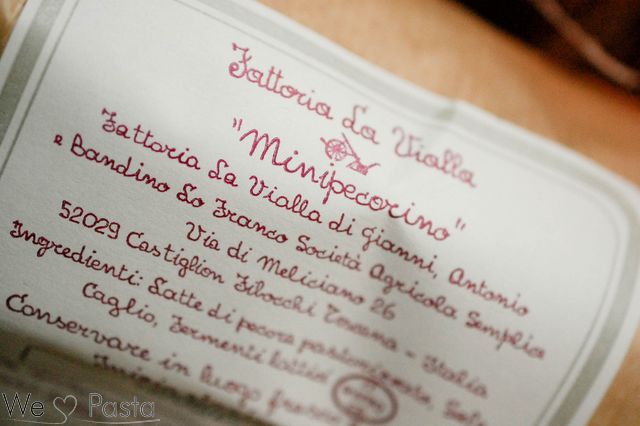 Fattoria La Vialla
"Minipecorino"
Fattoria La Vialla di Gianni, Antonio
e Bandino Lo Franco Società Agricola Semplice
Via di Meliciano 26
52029 Castiglion Fibocchi Toscana - Italia
Ingredienti: Latte di pecora pastorizzato, Sale,
Caglio, Fermenti lattici
Conservare in luogo fresco
We ♡ Pasta